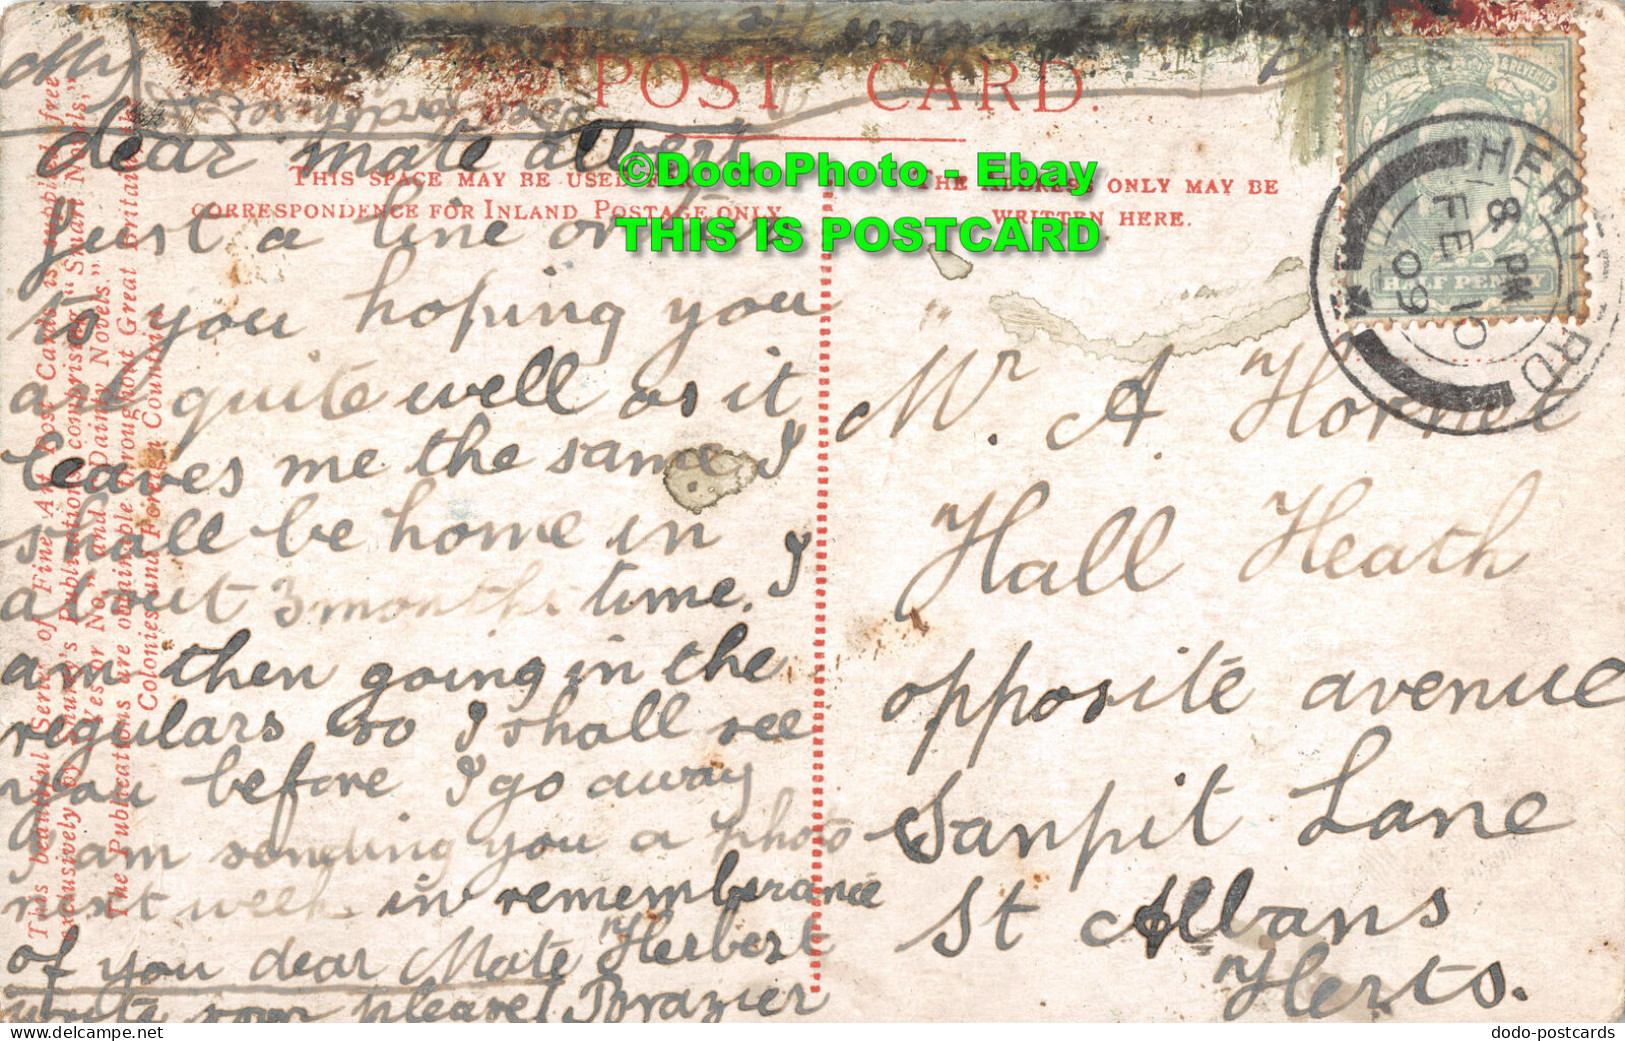 POST CARD.
THIS SPACE MAY BE USED FOR
CORRESPONDENCE FOR INLAND POSTAGE ONLY.
THE ADDRESS ONLY MAY BE
WRITTEN HERE.
©DodoPhoto - Ebay
THIS IS POSTCARD
My
dear mate albert
Just a line or two
to you hoping you
are quite well as it
leaves me the same I
shall be home in
about 3 months time. I
am then going in the
regulars so I shall see
you before I go away
I am sending you a photo
next week in rememberance
of you dear Mate Herbert
write soon please Brazier
Mr. A Hornet
Hall Heath
opposite avenue
Sanpit Lane
St Albans
Herts.
POSTAGE & REVENUE
HALF PENNY
HERTFORD
8 PM
FE 10
09
This beautiful Series of Fine Art Post Cards is supplied free
exclusively by Shurey's Publications, comprising "Smart Novels,"
"Yes or No," and "Dainty Novels."
The Publications are obtainable throughout Great Britain, the
Colonies and Foreign Countries.
dodo-postcards
www.delcampe.net